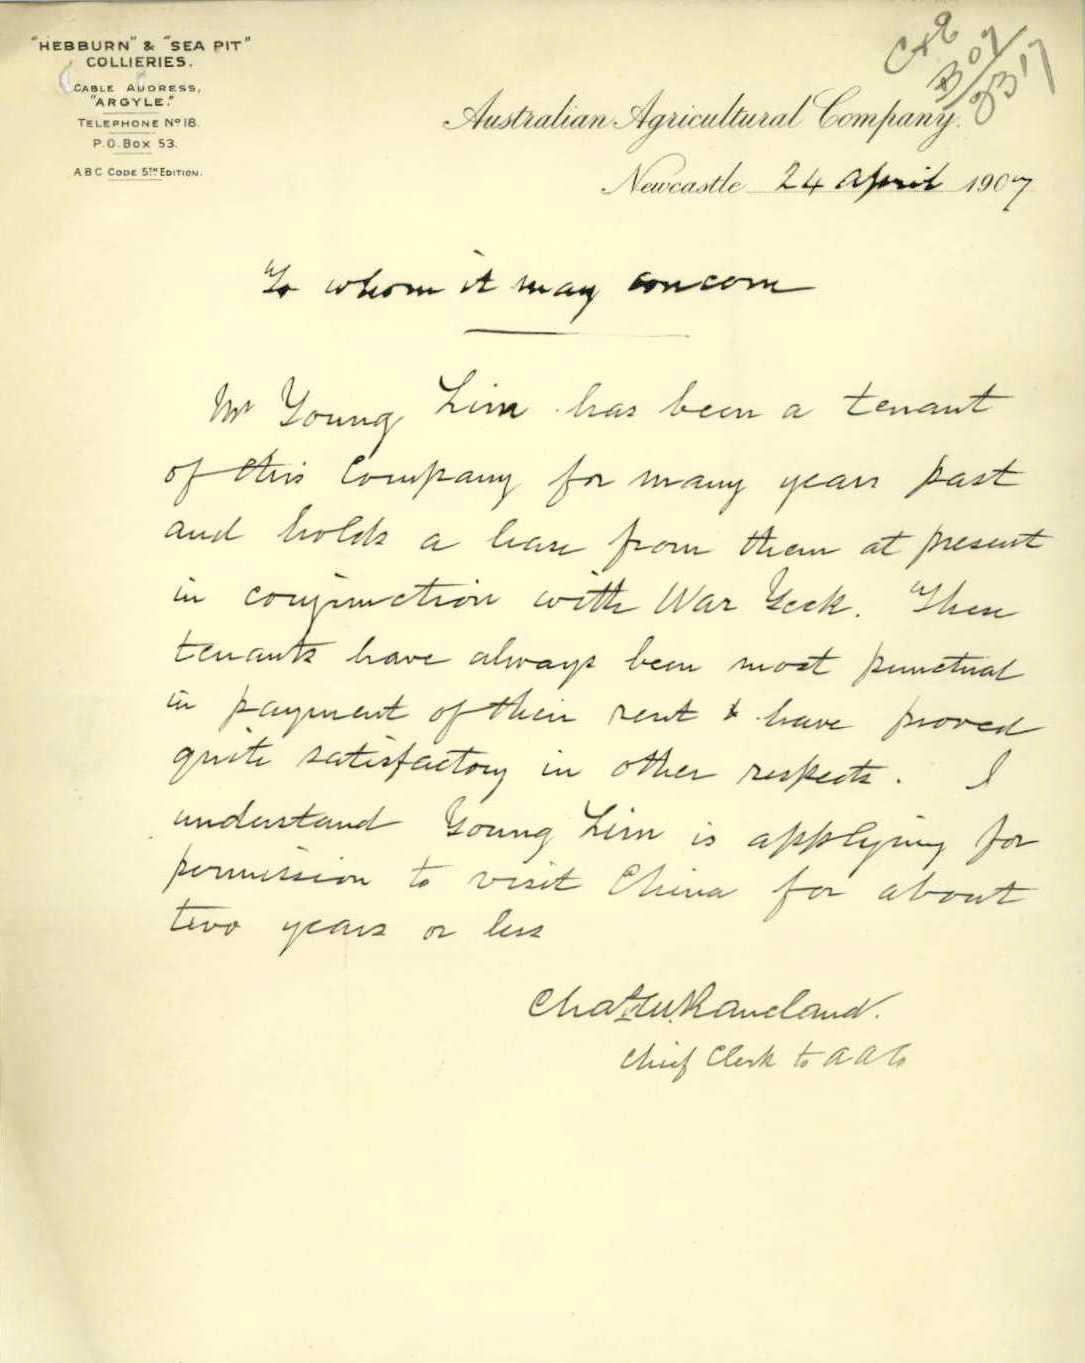 "HEBBURN" & "SEA PIT"
COLLIERIES.
CABLE ADDRESS,
"ARGYLE."
TELEPHONE No 18.
P.O. BOX 53.
A B C CODE 5TH EDITION.
C & E
B 07
2317
Australian Agricultural Company.
Newcastle 24 April 1907
To whom it may concern
Mr Young Lim has been a tenant
of this Company for many years past
and holds a lease from them at present
in conjunction with War Geek. These
tenants have always been most punctual
in payment of their rent & have proved
quite satisfactory in other respects. I
understand Young Lim is applying for
permission to visit China for about
two years or less
Chief Clerk to A A Co